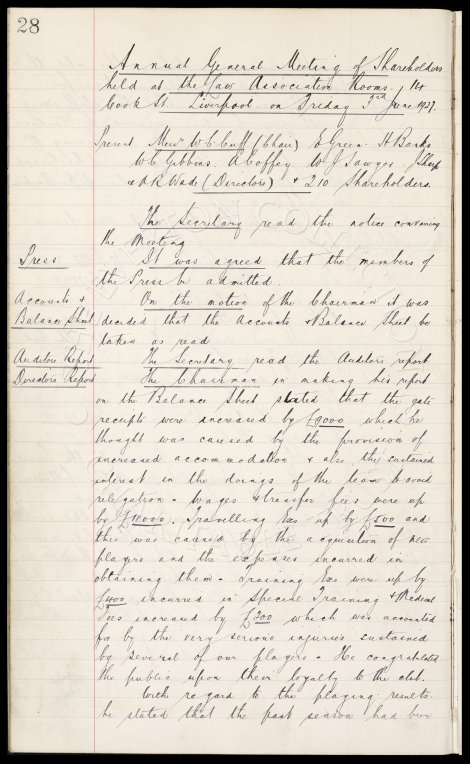 28
Annual General Meeting of Shareholders
held at the Law Association Rooms, 14
Cook St. Liverpool on Friday 3rd June 1927.
Present Messrs W.C. Cuff (Chair) E Green. H Banks
W.C. Gibbins. A Coffey. W.J. Sawyer. J Sharp
& A.R. Wade (Directors) & 210 Shareholders.
The Secretary read the notice convening
the Meeting
Press. It was agreed that the members of
the Press be admitted.
Accounts & On the motion of the Chairman it was
Balance Sheet decided that the Accounts & Balance Sheet be
taken as read
Auditors Report The Secretary read the Auditors report
Directors Report The Chairman in making his report
on the Balance Sheet stated that the gate
receipts were increased by £8000 which he
thought was caused by the provision of
increased accommodation & also the sustained
interest in the doings of the team to avoid
relegation - Wages & transfer fees were up
by £10000. Travelling Exs up by £500 and
this was caused by the acquisition of new
players and the expenses incurred in
obtaining them - Training Exs were up by
£400 incurred in Special Training & Medical
Fees increased by £200 which was accounted
for by the very serious injuries sustained
by several of our players - He congratulated
the public upon their loyalty to the club.
With regard to the playing results.
he stated that the past season had been